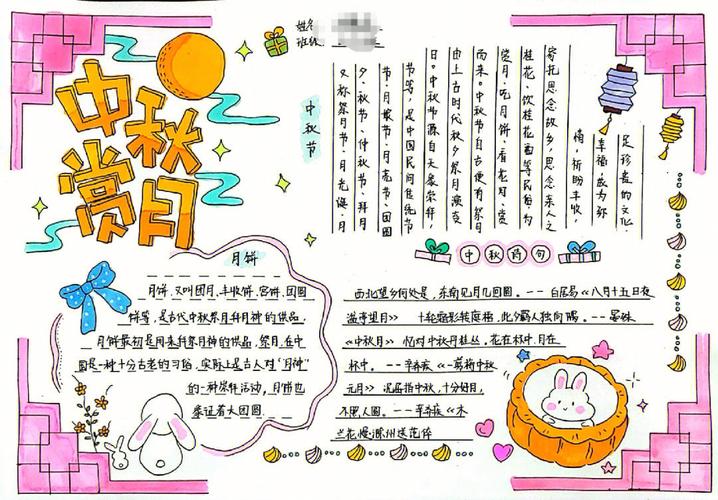 姓名
班级
中秋赏月
中秋节
又称祭月节、月光诞、月
夕、秋节、仲秋节、拜月
节、月娘节、月亮节、团圆
节等，是中国民间传统节
日。中秋节源自天象崇拜，
由上古时代秋夕祭月演变
而来。中秋节自古便有祭月
赏月、吃月饼、看花灯、赏
桂花、饮桂花酒等民俗，为
寄托思念故乡，思念亲人之
情，祈盼丰收，
幸福，成为弥
足珍贵的文化
月饼
月饼，又叫团月、丰收饼、宫饼、团圆
饼等，是古代中秋祭月拜月神的供品，
月饼最初是用来拜祭月神的供品，祭月，在中
国是一种十分古老的习俗，实际上是古人对“月神”
的一种崇拜活动，月饼也
象征着大团圆
中秋诗句
西北望乡何处是，东南见月几回圆。--白居易《八月十五日夜
湓亭望月》 十轮霜影转庭梧，此夕羁人独向隅。--晏殊
《中秋月》 忆对中秋丹桂丛，花在杯中，月在
杯中。--辛弃疾《一剪梅中秋
元月》 屈指中秋，十分好月，
不照人圆。--辛弃疾《木
兰花慢·滁州送范倅